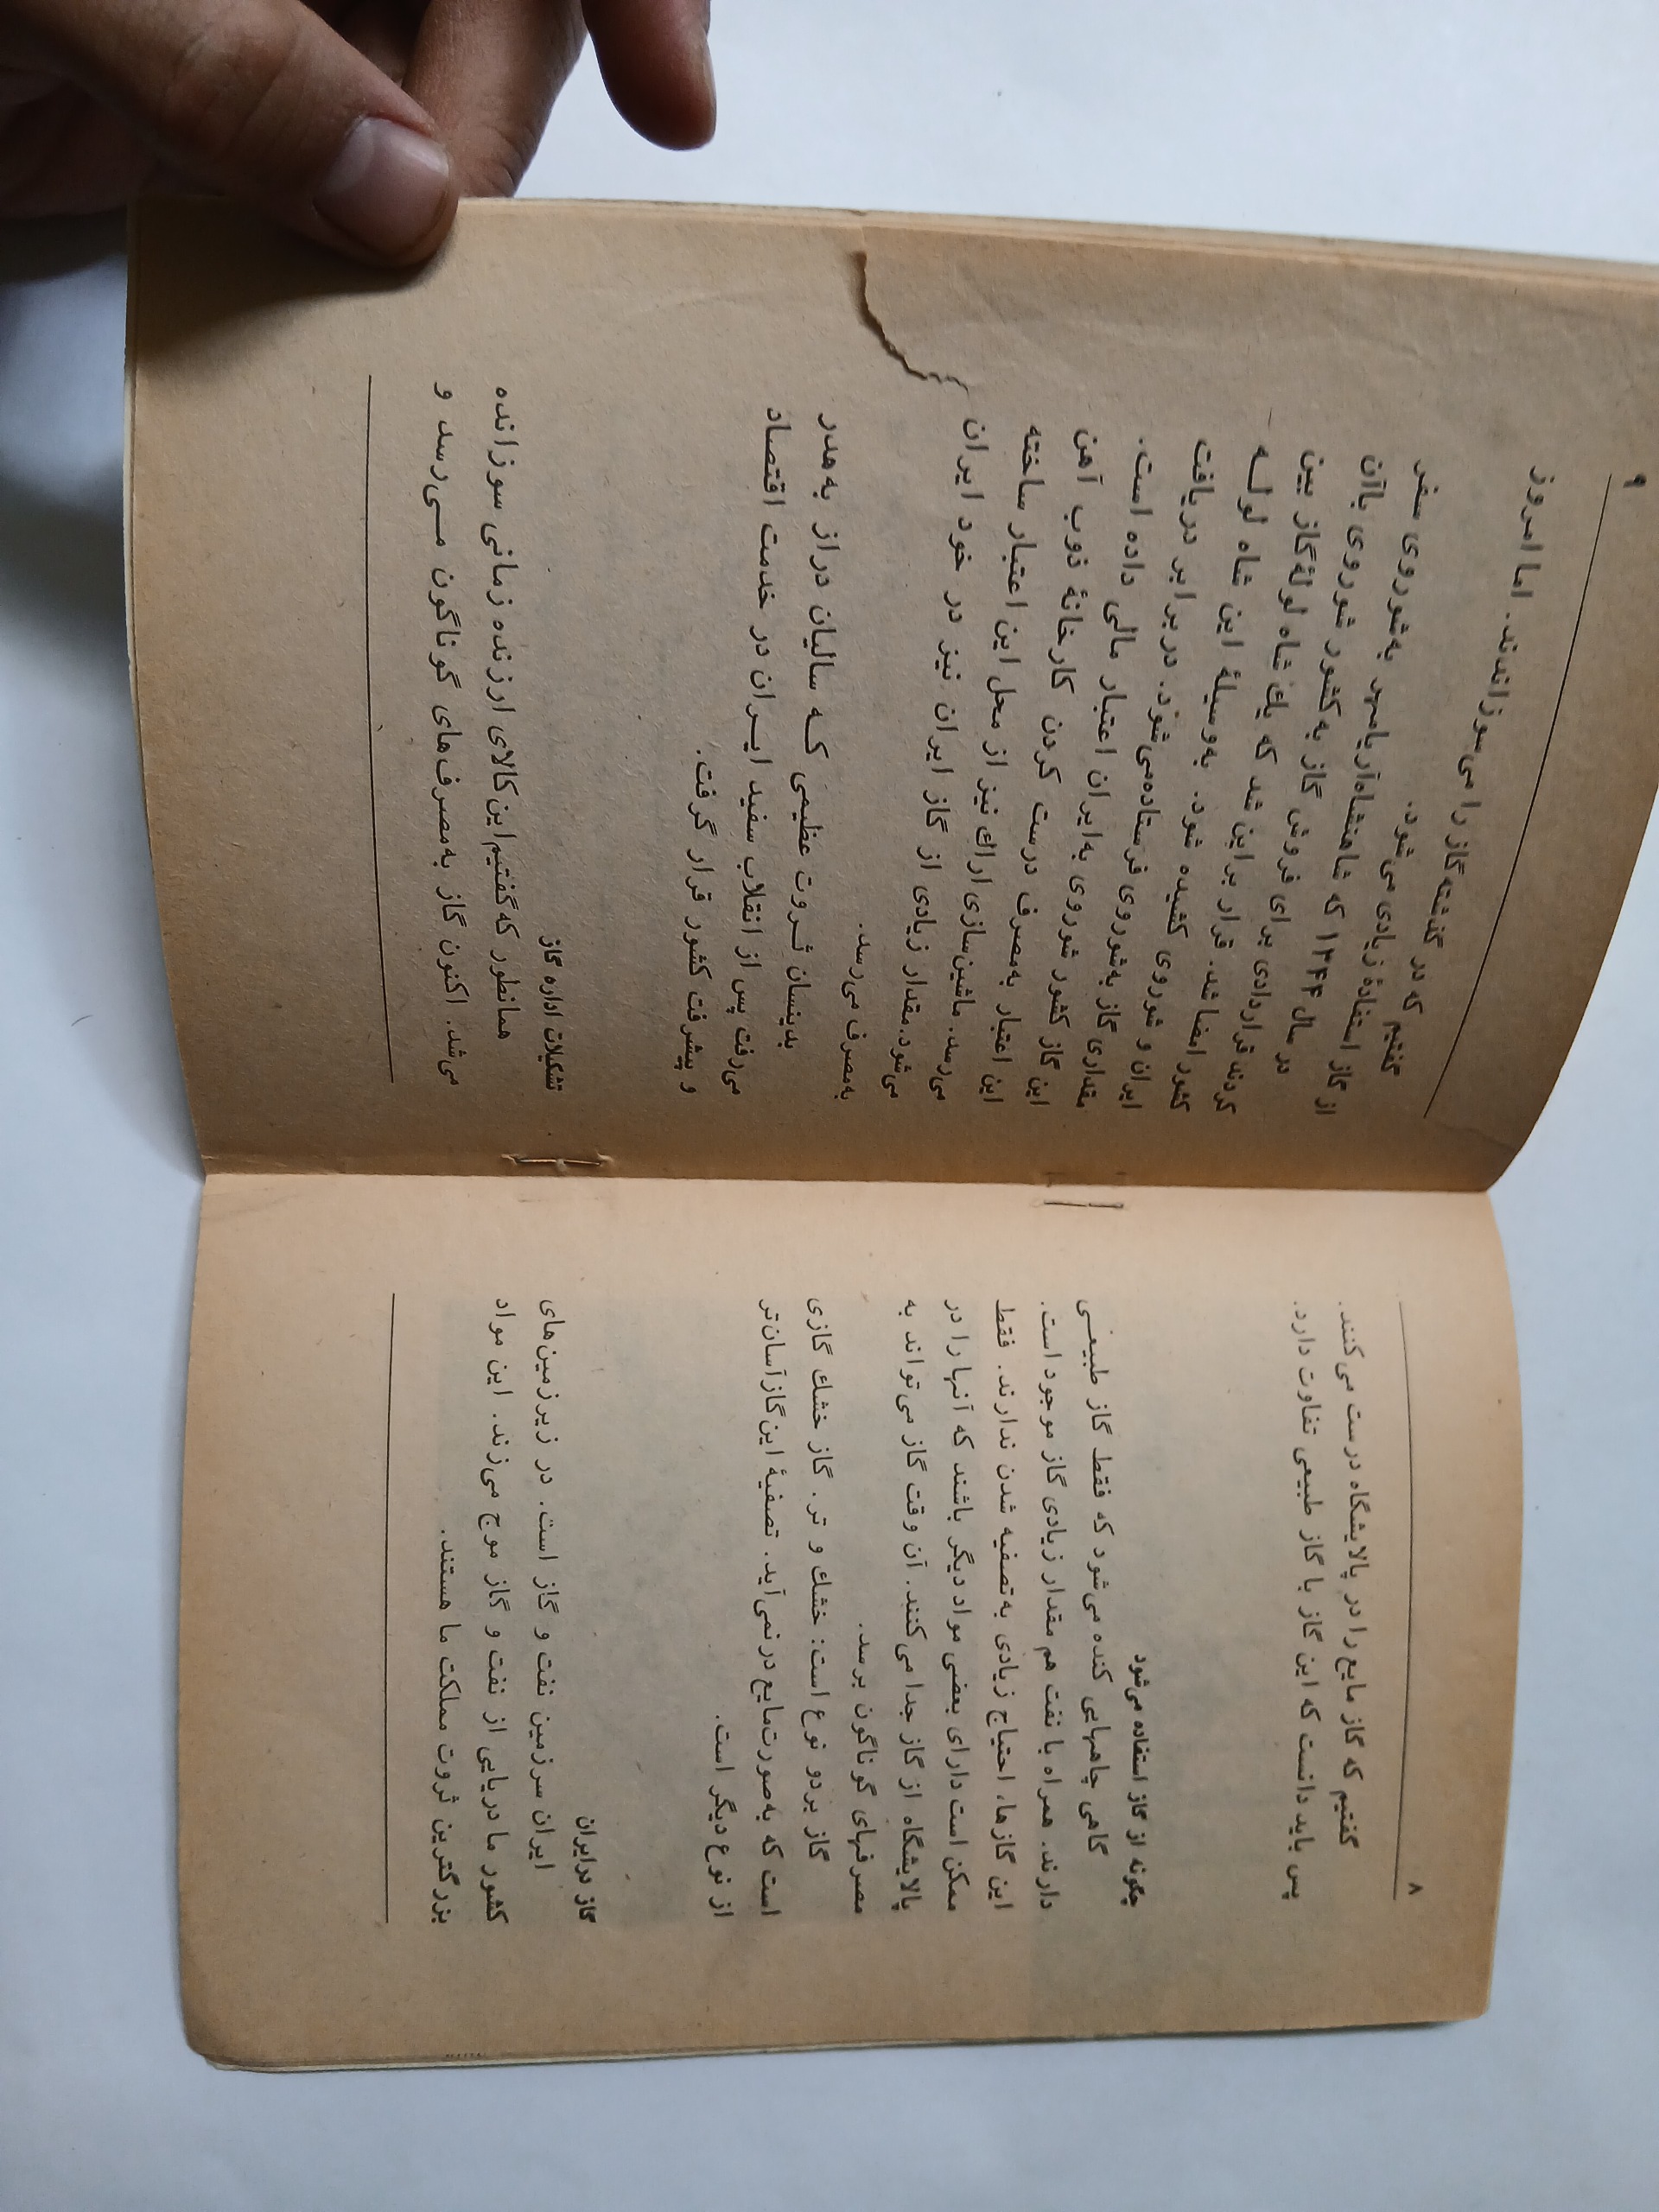 ۸
گفتیم که گاز مایع را در پالایشگاه درست می‌کنند.
پس باید دانست که این گاز با گاز طبیعی تفاوت دارد.
چگونه از گاز استفاده می‌شود
گاهی چاههایی کنده می‌شود که فقط گاز طبیعی
دارند. همراه با نفت هم مقدار زیادی گاز موجود است.
این گازها، احتیاج زیادی به‌تصفیه شدن ندارند. فقط
ممکن است دارای بعضی مواد دیگر باشند که آنها را در
پالایشگاه از گاز جدا می‌کنند. آن وقت گاز می‌تواند به
مصرفهای گوناگون برسد.
گاز بردو نوع است: خشك و تر. گاز خشك گازی
است که به‌صورت‌مایع درنمی‌آید. تصفیهٔ این‌گازآسان‌تر
از نوع دیگر است.
گاز درایران
ایران سرزمین نفت و گاز است. در زیرزمین‌های
کشور ما دریایی از نفت و گاز موج می‌زند. این مواد
بزرگترین ثروت مملکت ما هستند.
۹
گفتیم که در گذشته گاز را می‌سوزاندند. اما امروز
از گاز استفادهٔ زیادی می‌شود.
در سال ۱۳۴۴ که شاهنشاه‌آریامهر به‌شوروی سفر
کردند قراردادی برای فروش گاز به کشور شوروی باآن
کشور امضا شد. قرار براین شد که یك شاه لولهٔ گاز بین
ایران و شوروی کشیده شود. به‌وسیلهٔ این شاه لوله
مقداری گاز به‌شوروی فرستاده‌می‌شود. دربرابر دریافت
این گاز کشور شوروی به‌ایران اعتبار مالی داده است.
این اعتبار به‌مصرف درست کردن کارخانهٔ ذوب آهن
می‌رسد. ماشین‌سازی اراك نیز از محل این اعتبار ساخته
می‌شود. مقدار زیادی از گاز ایران نیز در خود ایران
به‌مصرف می‌رسد.
بدینسان ثروت عظیمی که سالیان دراز به‌هدر
می‌رفت پس از انقلاب سفید ایران در خدمت اقتصاد
و پیشرفت کشور قرار گرفت.
تشکیلات اداره گاز
همانطور که گفتیم‌این کالای ارزنده زمانی سوزانده
می‌شد. اکنون گاز به‌مصرف‌های گوناگون می‌رسد و